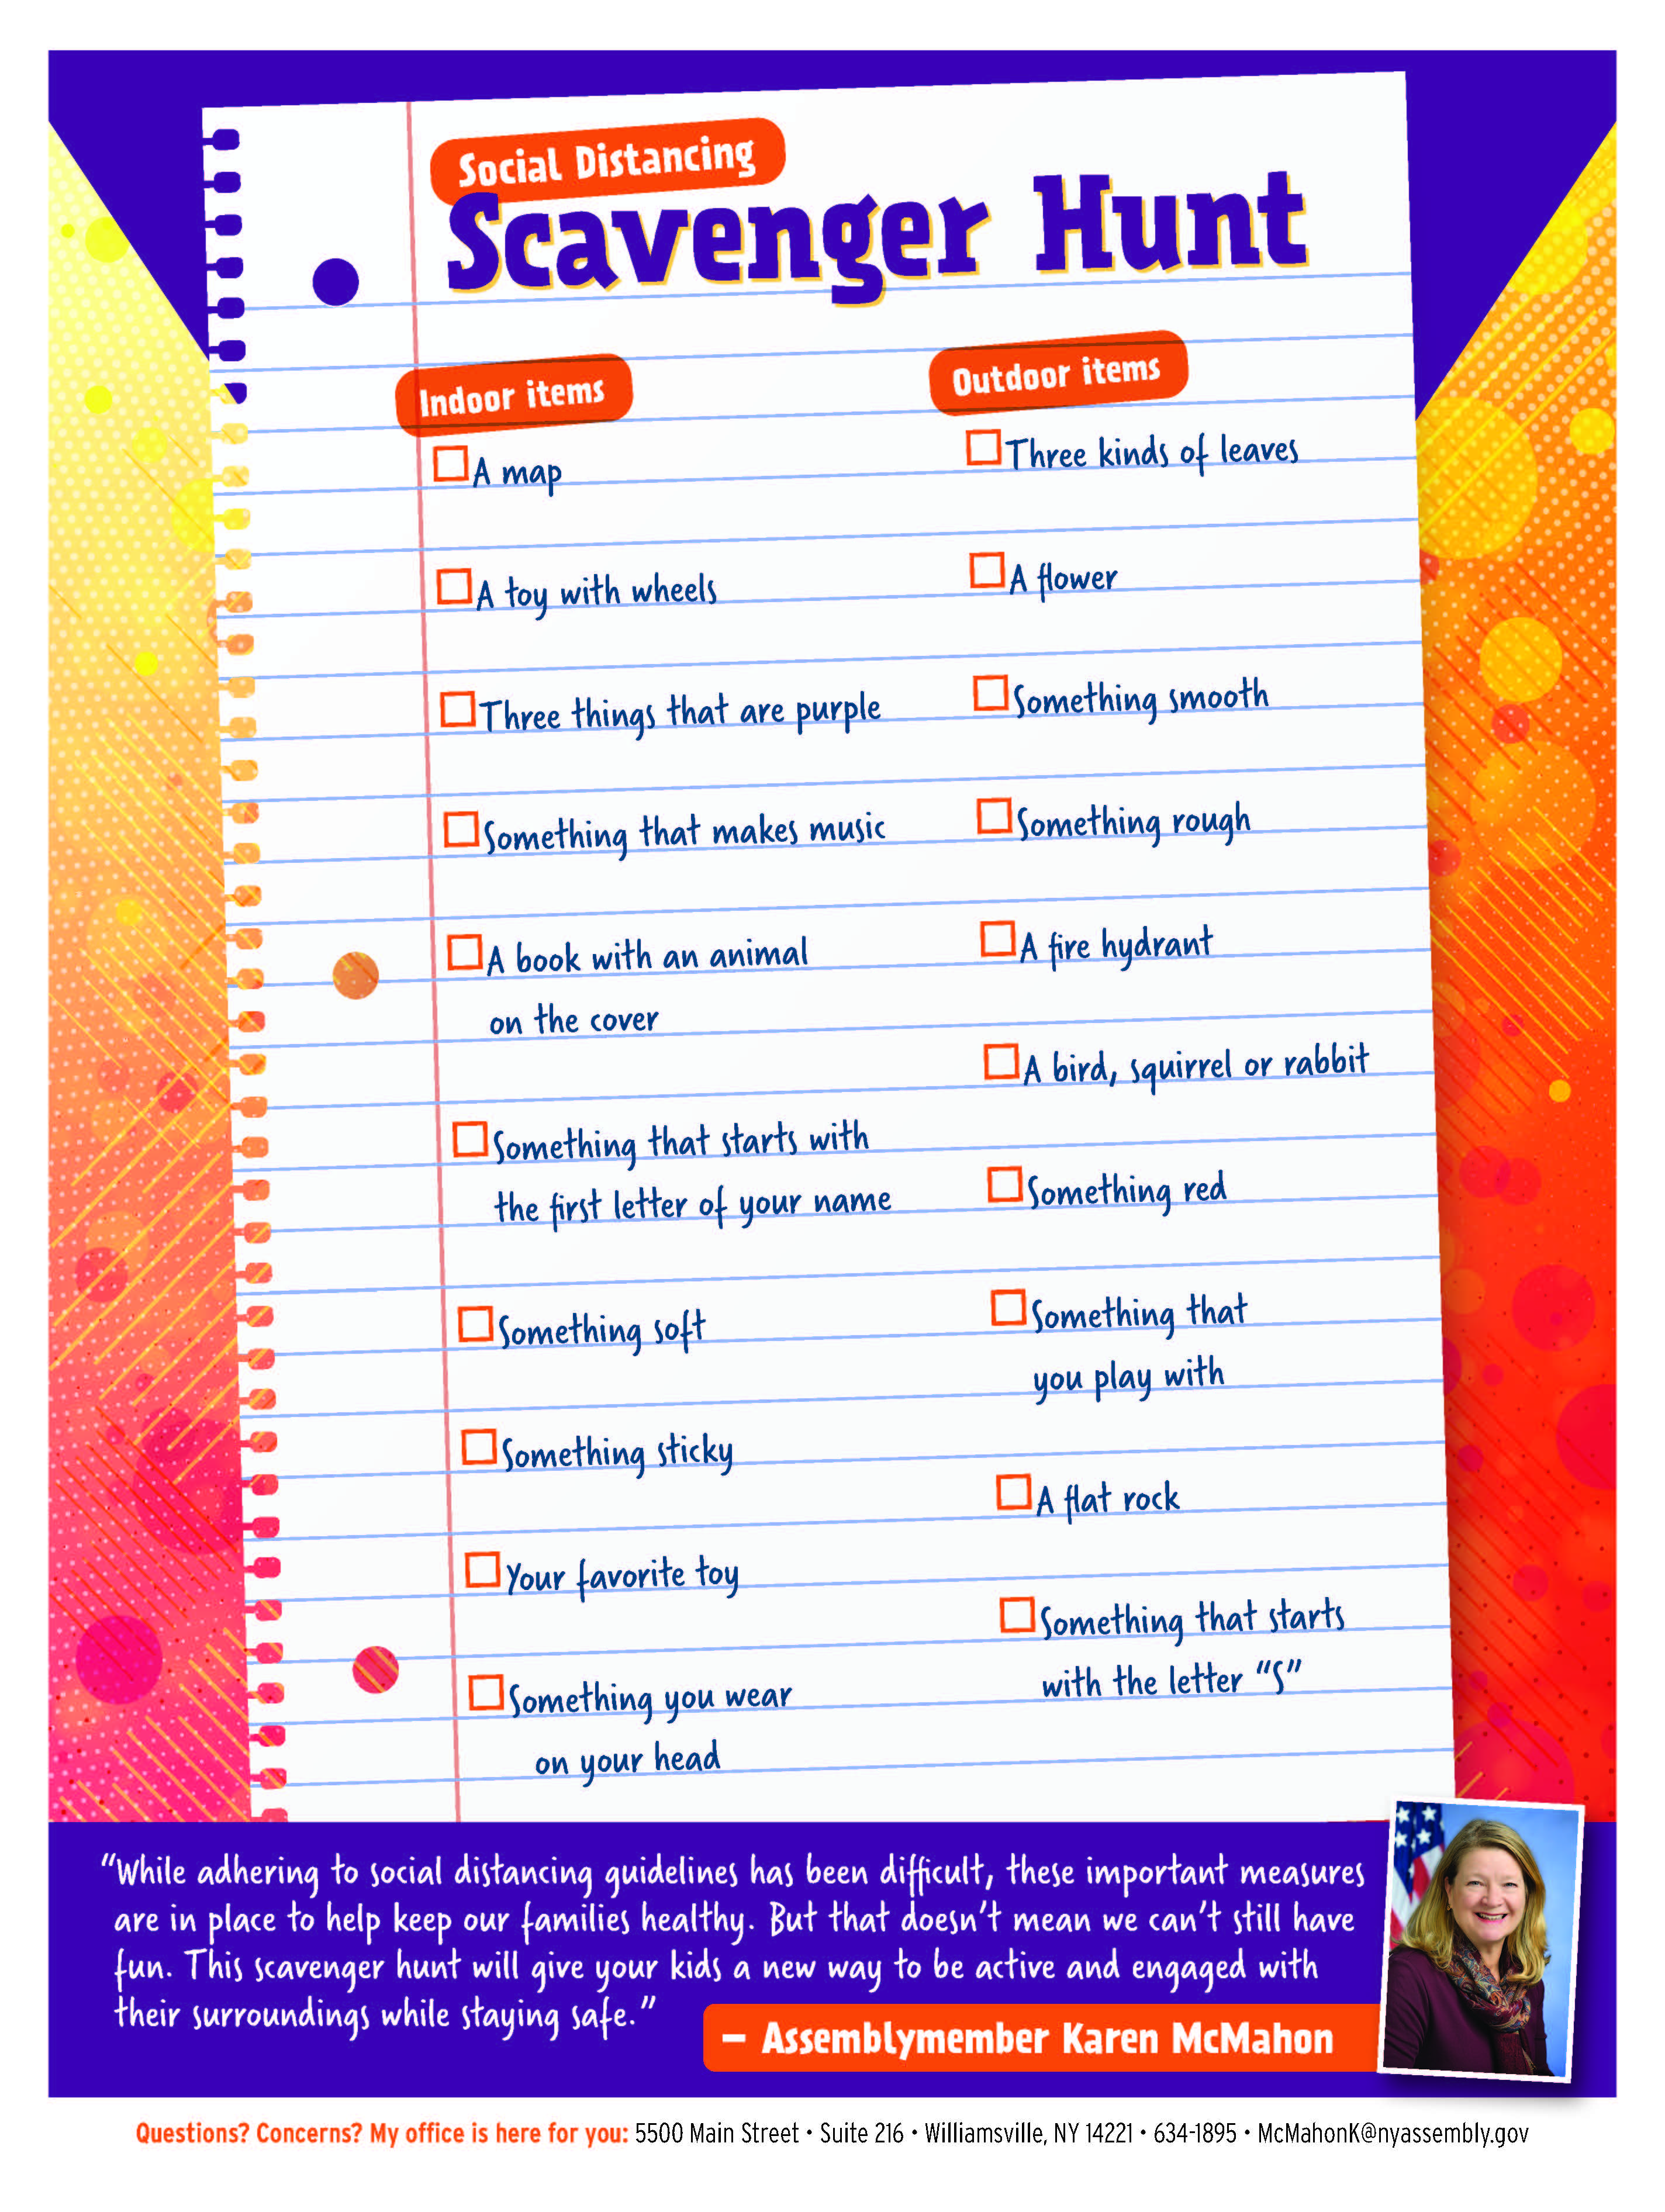 Social Distancing
Scavenger Hunt
Indoor items
A map
A toy with wheels
Three things that are purple
Something that makes music
A book with an animal
on the cover
Something that starts with
the first letter of your name
Something soft
Something sticky
Your favorite toy
Something you wear
on your head
Outdoor items
Three kinds of leaves
A flower
Something smooth
Something rough
A fire hydrant
A bird, squirrel or rabbit
Something red
Something that
you play with
A flat rock
Something that starts
with the letter “S”
“While adhering to social distancing guidelines has been difficult, these important measures
are in place to help keep our families healthy. But that doesn’t mean we can’t still have
fun. This scavenger hunt will give your kids a new way to be active and engaged with
their surroundings while staying safe.”
– Assemblymember Karen McMahon
Questions? Concerns? My office is here for you: 5500 Main Street • Suite 216 • Williamsville, NY 14221 • 634-1895 • McMahonK@nyassembly.gov